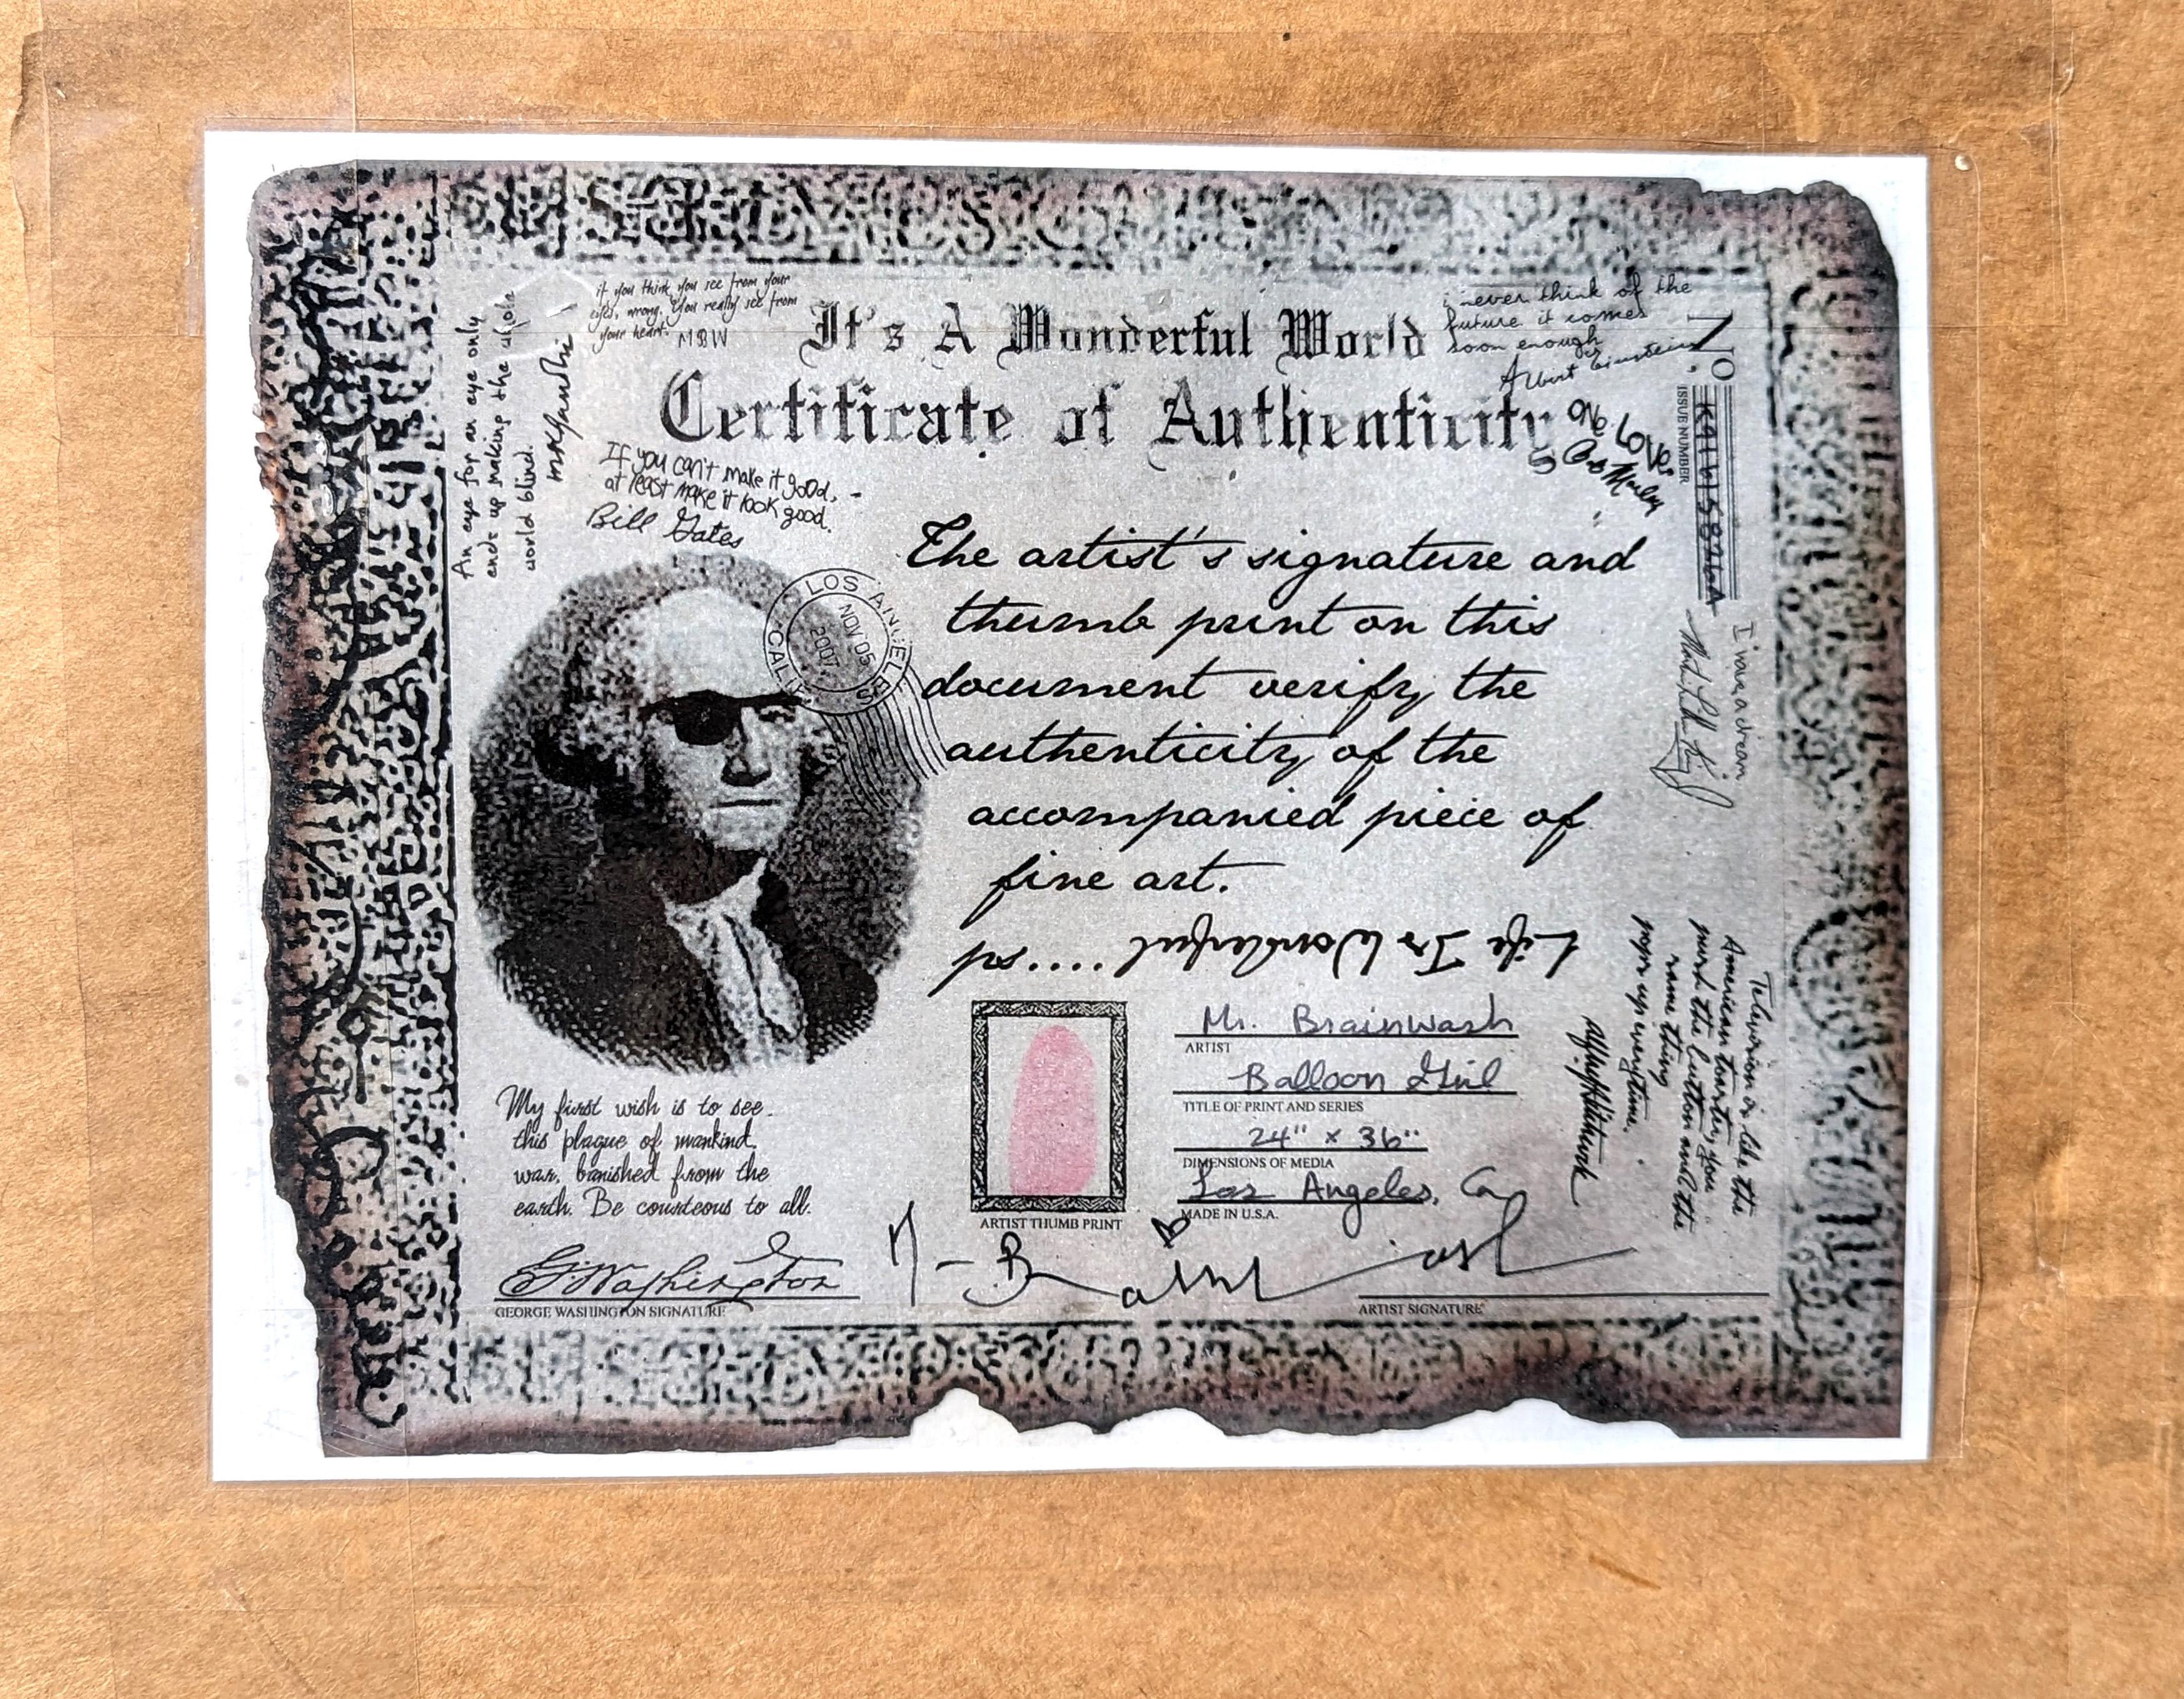 if you think you see from your
eyes, wrong. You really see from
your heart. MBW
An eye for an eye only
ends up making the whole
world blind.
mkgandhi
It's A Wonderful World
Certificate of Authenticity
i never think of the
future it comes
soon enough
Albert Einstein
ONE LOVE
Bob Marley
No.
ISSUE NUMBER
If you can't make it good,
at least make it look good.
Bill Gates
LOS ANGELES
CALIF
NOV 05
2007
The artist's signature and
thumb print on this
document verify the
authenticity of the
accompanied piece of
fine art.
ps.... Life Is Wonderful
I have a dream
Martin Luther King Jr
Television is like the
American toaster, you
push the button and the
same thing
pops up everytime.
My first wish is to see
this plague of mankind,
war, banished from the
earth. Be courteous to all.
G. Washington
GEORGE WASHINGTON SIGNATURE
ARTIST THUMB PRINT
Mr. Brainwash
ARTIST
Balloon Girl
TITLE OF PRINT AND SERIES
24" x 36"
DIMENSIONS OF MEDIA
Los Angeles, Ca
MADE IN U.S.A.
ARTIST SIGNATURE